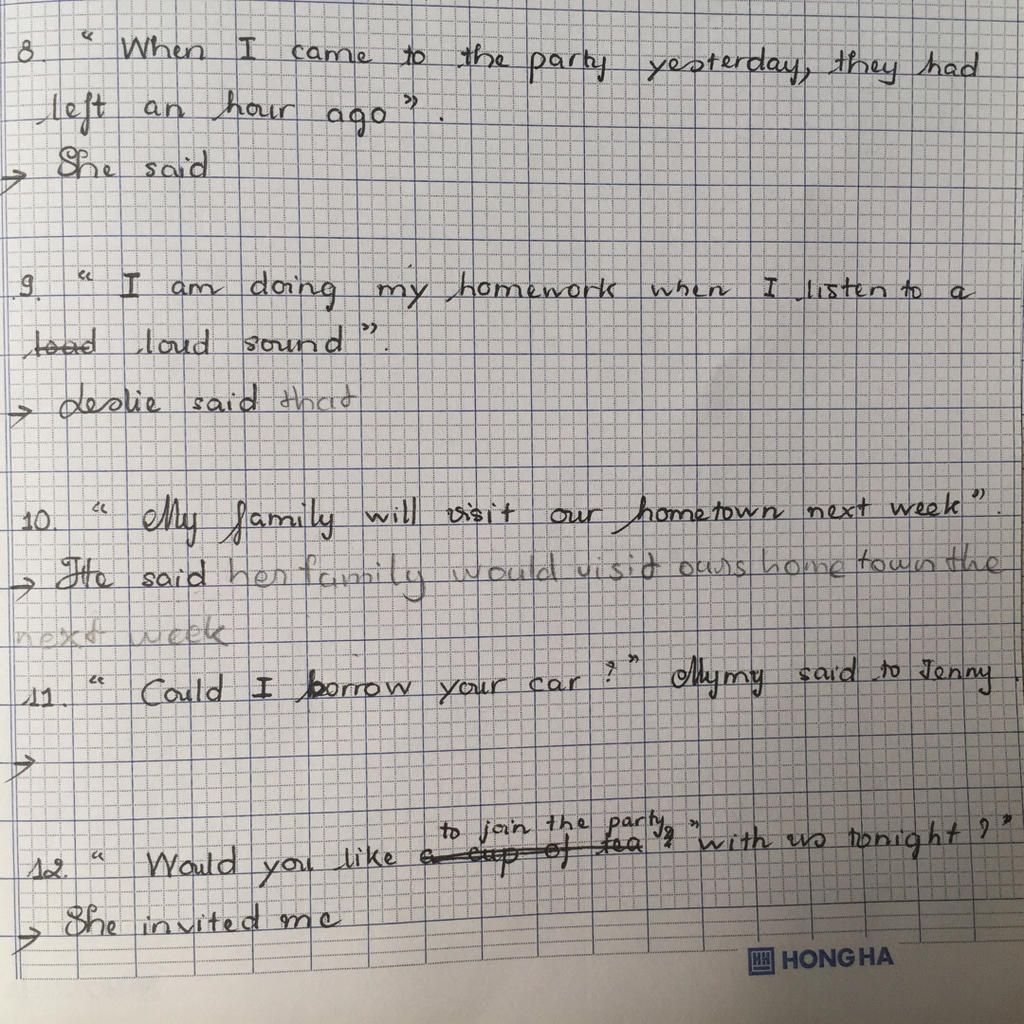 8. " When I came to the party yesterday, they had
left an hour ago ".
→ She said
9. " I am doing my homework when I listen to a
load loud sound ".
→ Leslie said that
10. " My family will visit our hometown next week ".
→ He said her family would visit ours home town the
next week
11. " Could I borrow your car ? " Mymy said to Jenny.
→
to join the party ? "
12. " Would you like a cup of tea with us tonight ? "
→ She invited me
HH HONG HA